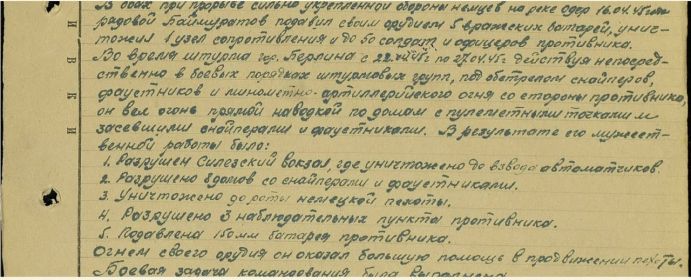 В боях при прорыве сильно укрепленной обороны немцев на реке Одер 16.04.45г.
рядовой Баймуратов подавил своим орудием 5 вражеских батарей, унич-
тожил 1 узел сопротивления и до 60 солдат и офицеров противника.
Во время штурма гор. Берлина с 22.04.45г по 27.04.45г действуя непосред-
ственно в боевых порядках штурмовых групп, под обстрелом снайперов,
фаустников и минометно-артиллерийского огня со стороны противника,
он вел огонь прямой наводкой по домам с пулеметными точками и
засевшими снайперами и фаустниками. В результате его мужест-
венной работы было:
1. Разрушен Силезский вокзал, где уничтожено до взвода автоматчиков.
2. Разрушено 8 домов со снайперами и фаустниками.
3. Уничтожено до роты немецкой пехоты.
4. Разрушено 3 наблюдательных пункта противника.
5. Подавлена 150мм батарея противника.
Огнем своего орудия он оказал большую помощь в продвижении пехоты.
Боевая задача командования была выполнена
И
В
К
И